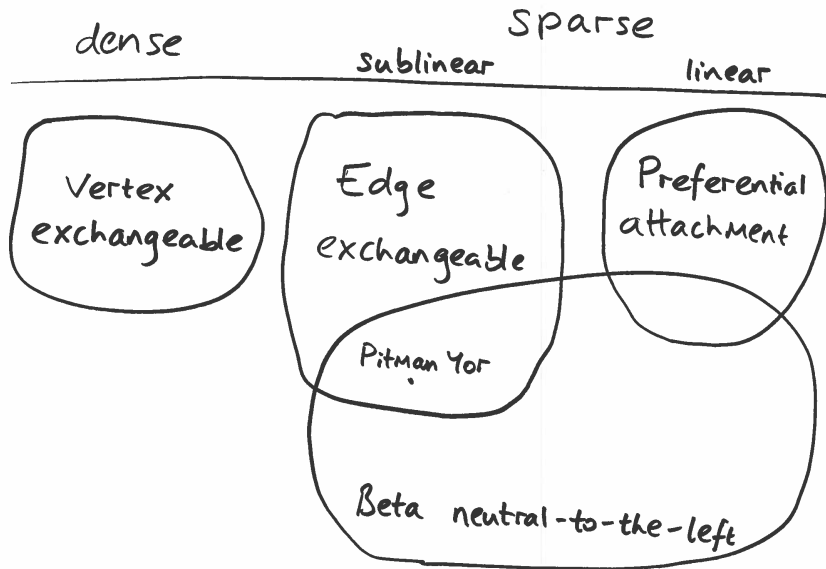 dense
sparse
sublinear
linear
Vertex
exchangeable
Edge
exchangeable
Preferential
attachment
Pitman Yor
Beta neutral-to-the-left